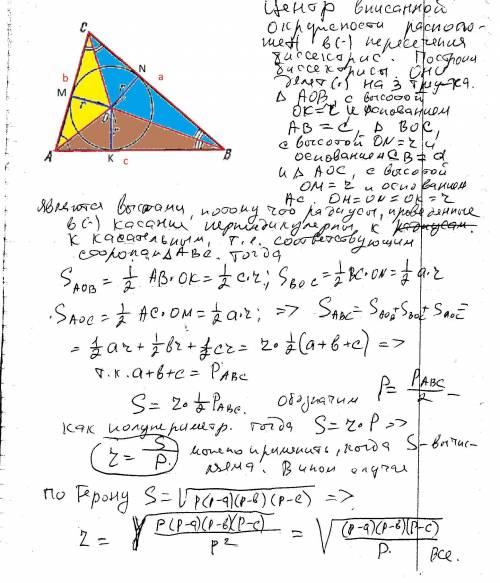 Центр вписанной
окружности располо-
жен в (·) пересечения
биссектрис. Построим
биссектрисы. Они
делят (·) на 3 тр-ка.
Δ AOB, с высотой
OK = r и основанием
AB = c, Δ BOC,
с высотой ON = r и
основанием CB = a
и Δ AOC, с высотой
OM = r и основанием
AC, OM = ON = OK = r
являются высотами, потому что радиусы, проведенные
в (·) касания перпендикулярны к
к касательным, т.е. соответствующим
сторонам ΔABC. Тогда
S_AOB = 1/2 AB·OK = 1/2 c·r; S_BOC = 1/2 BC·ON = 1/2 a·r
S_AOC = 1/2 AC·OM = 1/2 a·r; => S_ABC = S_AOB + S_BOC + S_AOC =
= 1/2 ar + 1/2 br + 1/2 cr = r·1/2 (a+b+c) =>
т.к. a+b+c = P_ABC
S = r·1/2 P_ABC. Обозначим P = P_ABC/2 –
как полупериметр. Тогда S = r·P =>
r = S/P. можно применить, когда S – вычис-
лена. В ином случае
по Герону S = √(P(P-a)(P-b)(P-c)) =>
r = √(P(P-a)(P-b)(P-c)/P²) = √((P-a)(P-b)(P-c)/P) Все.
C
b
N
a
M
O
r
A
K
c
B